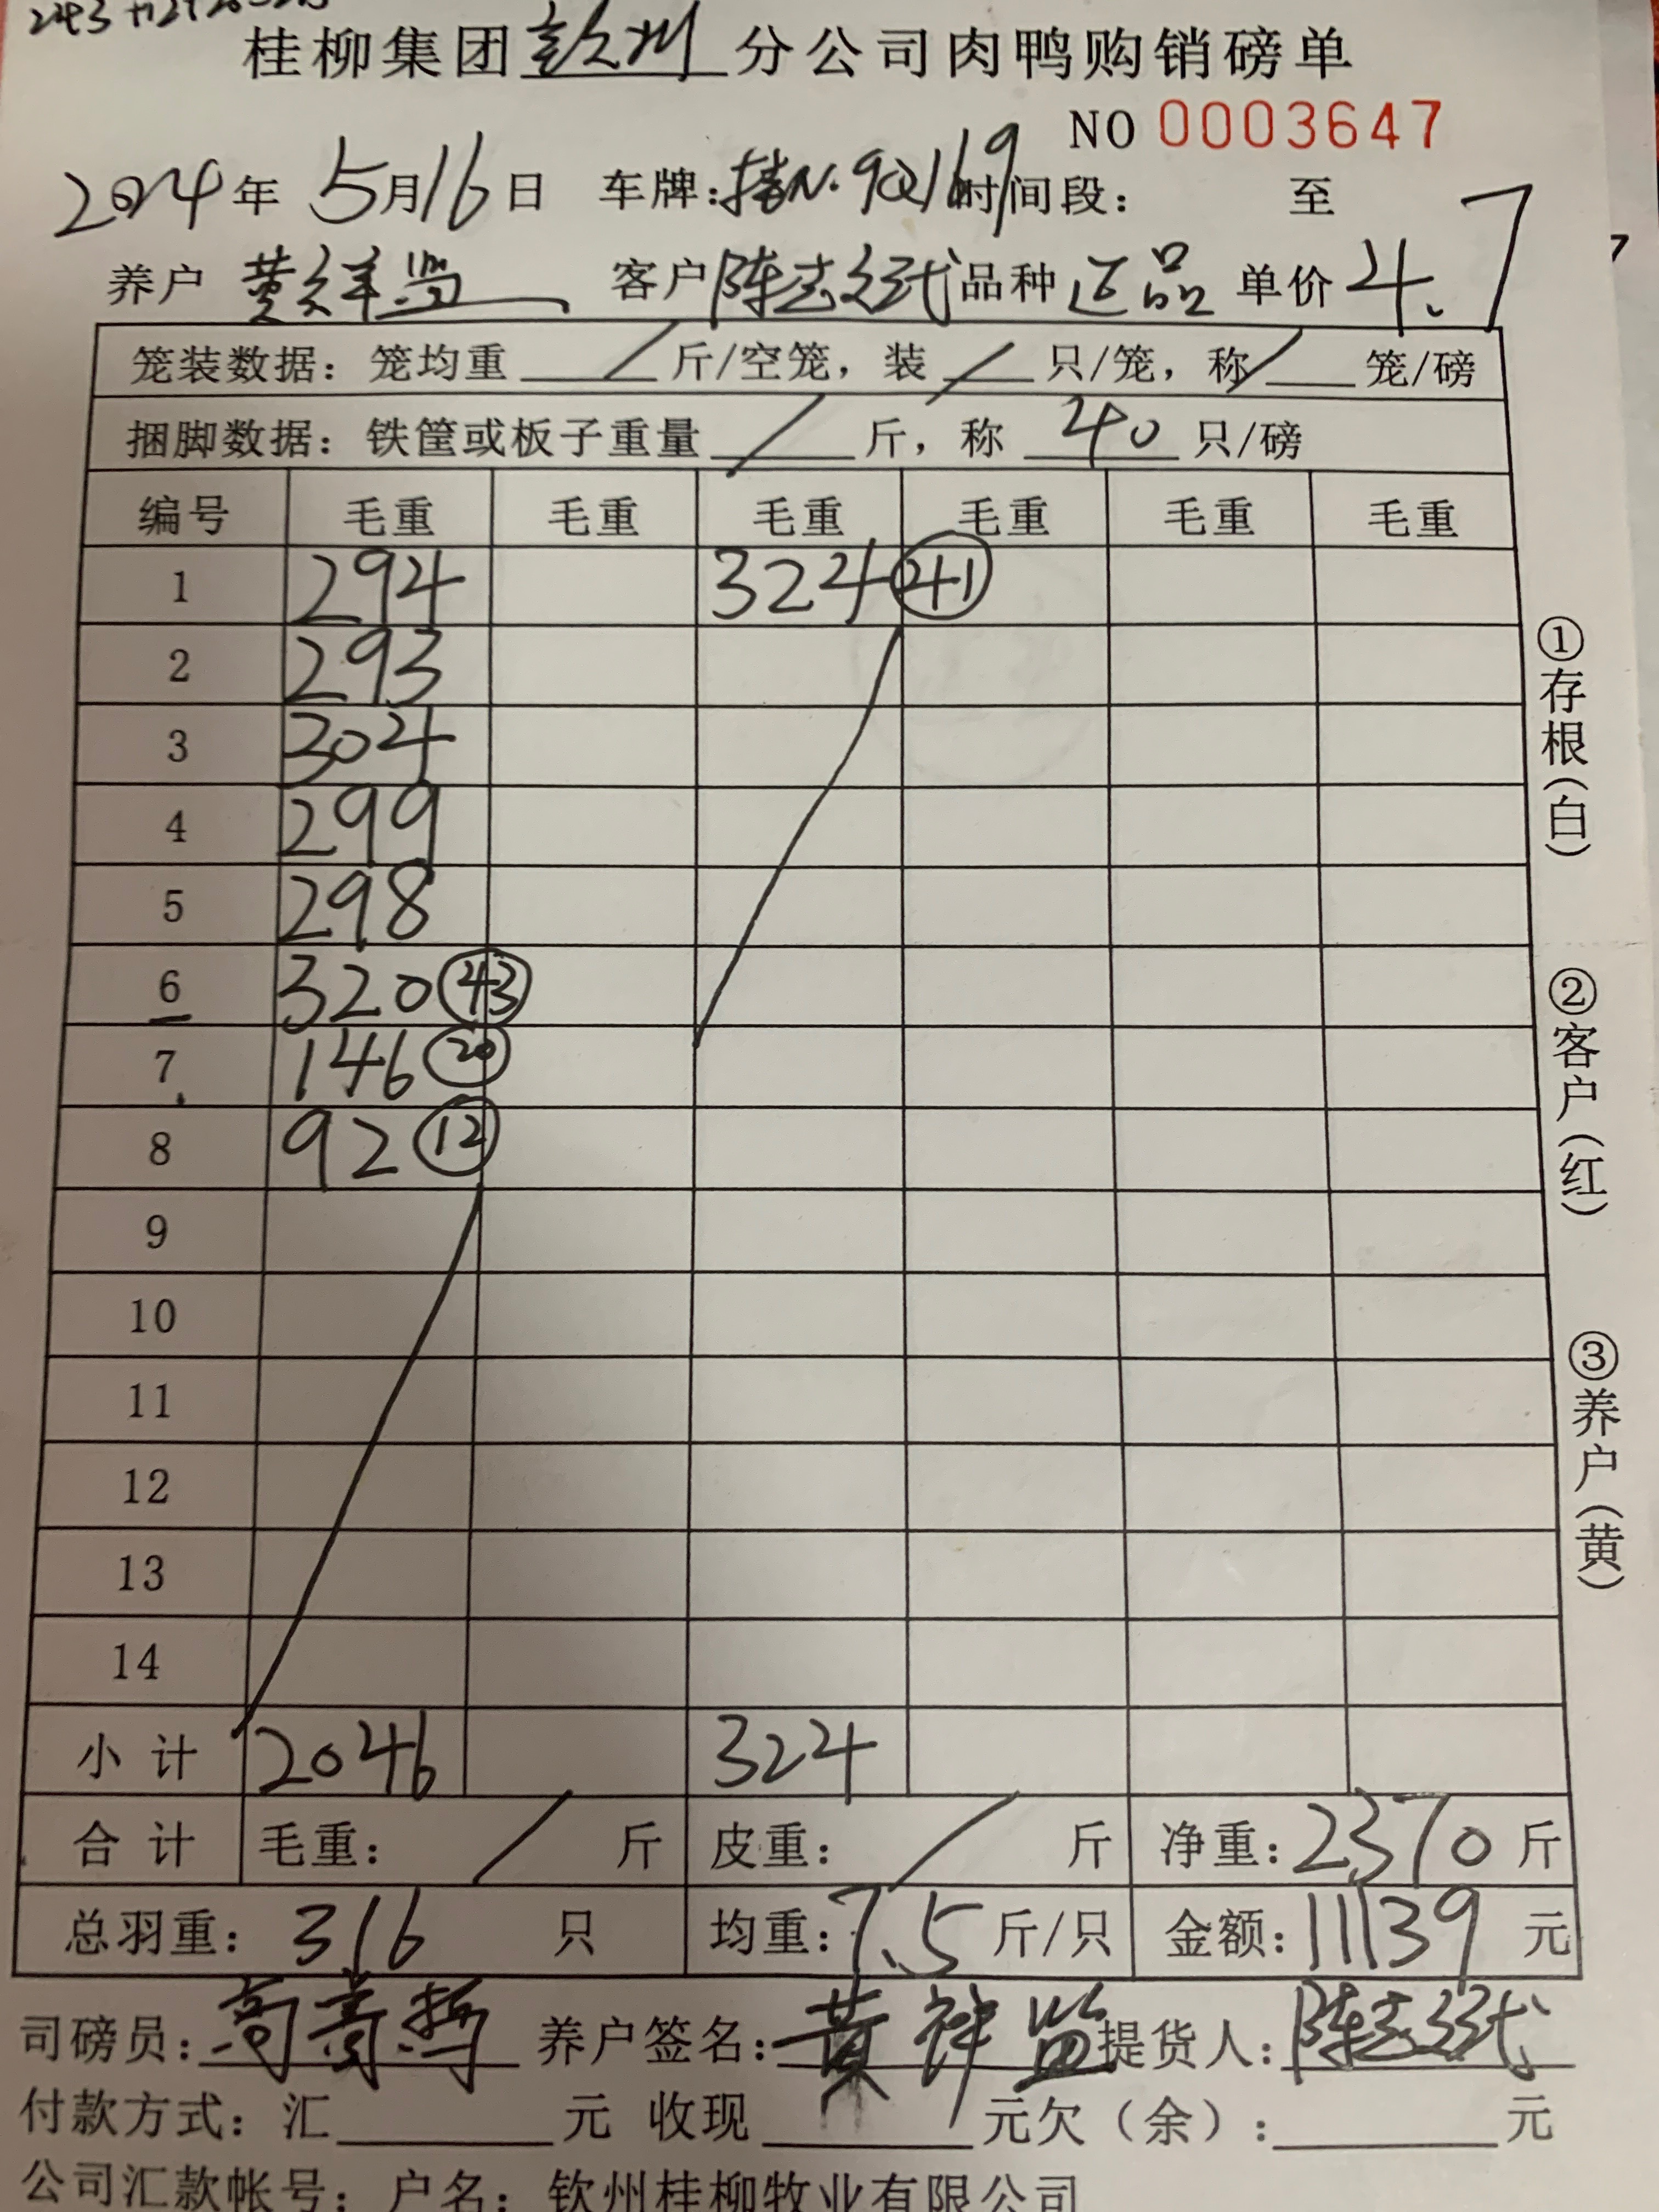 桂柳集团钦州分公司肉鸭购销磅单
NO 0003647
2024年 5月16日 车牌:桂N·9Q169 时间段: 至
养户 黄祥监 客户 陈志 品种 正品 单价 4.7
笼装数据: 笼均重 / 斤/空笼, 装 / 只/笼, 称 / 笼/磅
捆脚数据: 铁筐或板子重量 / 斤, 称 40 只/磅
编号 毛重 毛重 毛重 毛重 毛重 毛重
1 294 324 ㊶
2 293
3 304
4 299
5 298
6 320 ㊸
7 146 ⑳
8 92 ⑫
9
10
11
12
13
14
小计 2046 324
合计 毛重: / 斤 皮重: / 斤 净重: 2370 斤
总羽重: 316 只 均重: 7.5 斤/只 金额: 11139 元
司磅员: 高 养户签名: 黄祥监 提货人: 陈志
付款方式: 汇 元 收现 元欠(余): 元
公司汇款帐号: 户名: 钦州桂柳牧业有限公司
①存根(白)
②客户(红)
③养户(黄)
7